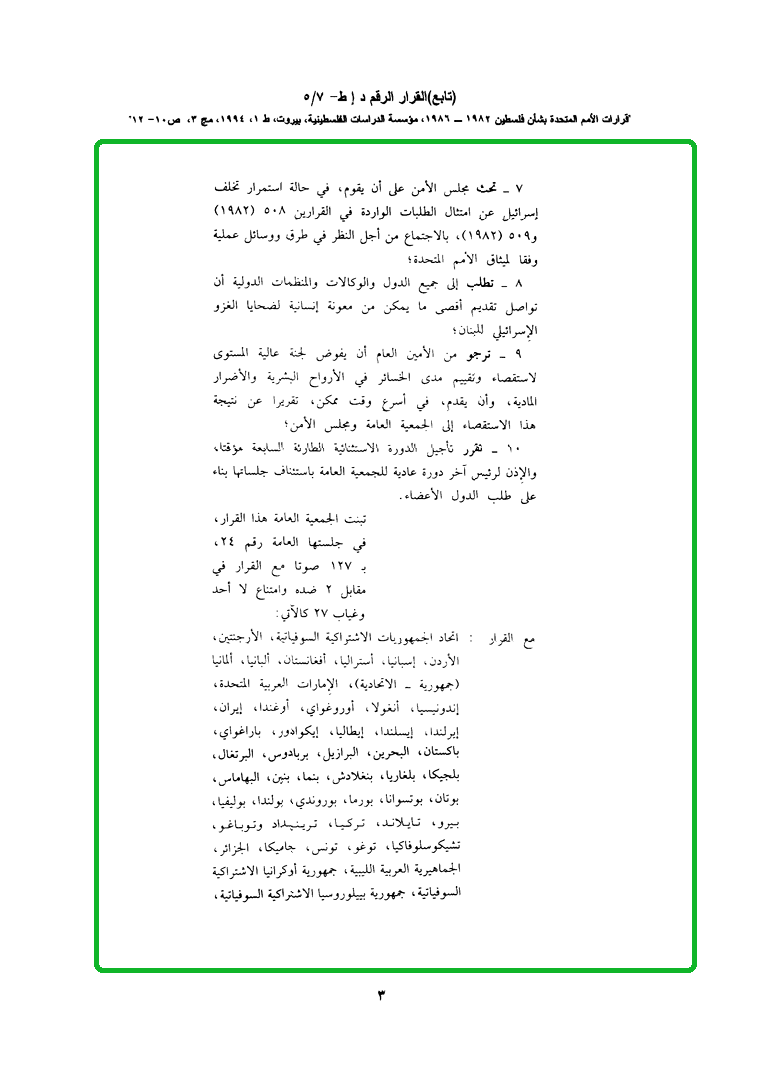 (تابع)القرار الرقم د إ ط- ٥/٧
"قرارات الأمم المتحدة بشأن فلسطين ١٩٨٢ ــ ١٩٨٦، مؤسسة الدراسات الفلسطينية، بيروت، ط ١، ١٩٩٤، مج ٣، ص١٠- ١٢"
٧ ـ تحث مجلس الأمن على أن يقوم، في حالة استمرار تخلف
إسرائيل عن امتثال الطلبات الواردة في القرارين ٥٠٨ (١٩٨٢)
و٥٠٩ (١٩٨٢)، بالاجتماع من أجل النظر في طرق ووسائل عملية
وفقا لميثاق الأمم المتحدة؛
٨ ـ تطلب إلى جميع الدول والوكالات والمنظمات الدولية أن
تواصل تقديم أقصى ما يمكن من معونة إنسانية لضحايا الغزو
الإسرائيلي للبنان؛
٩ ـ ترجو من الأمين العام أن يفوض لجنة عالية المستوى
لاستقصاء وتقييم مدى الخسائر في الأرواح البشرية والأضرار
المادية، وأن يقدم، في أسرع وقت ممكن، تقريرا عن نتيجة
هذا الاستقصاء إلى الجمعية العامة ومجلس الأمن؛
١٠ ـ تقرر تأجيل الدورة الاستثنائية الطارئة السابعة مؤقتا،
والإذن لرئيس آخر دورة عادية للجمعية العامة باستئناف جلساتها بناء
على طلب الدول الأعضاء.
تبنت الجمعية العامة هذا القرار،
في جلستها العامة رقم ٢٤،
بـ ١٢٧ صوتا مع القرار في
مقابل ٢ ضده وامتناع لا أحد
وغياب ٢٧ كالآتي:
مع القرار : اتحاد الجمهوريات الاشتراكية السوفياتية، الأرجنتين،
الأردن، إسبانيا، أستراليا، أفغانستان، ألبانيا، ألمانيا
(جمهورية ـ الاتحادية)، الإمارات العربية المتحدة،
إندونيسيا، أنغولا، أوروغواي، أوغندا، إيران،
إيرلندا، إيسلندا، إيطاليا، إيكوادور، باراغواي،
باكستان، البحرين، البرازيل، بربادوس، البرتغال،
بلجيكا، بلغاريا، بنغلادش، بنما، بنين، البهاماس،
بوتان، بوتسوانا، بورما، بوروندي، بولندا، بوليفيا،
بيرو، تايلاند، تركيا، ترينيداد وتوباغو،
تشيكوسلوفاكيا، توغو، تونس، جاميكا، الجزائر،
الجماهيرية العربية الليبية، جمهورية أوكرانيا الاشتراكية
السوفياتية، جمهورية بييلوروسيا الاشتراكية السوفياتية،
٣